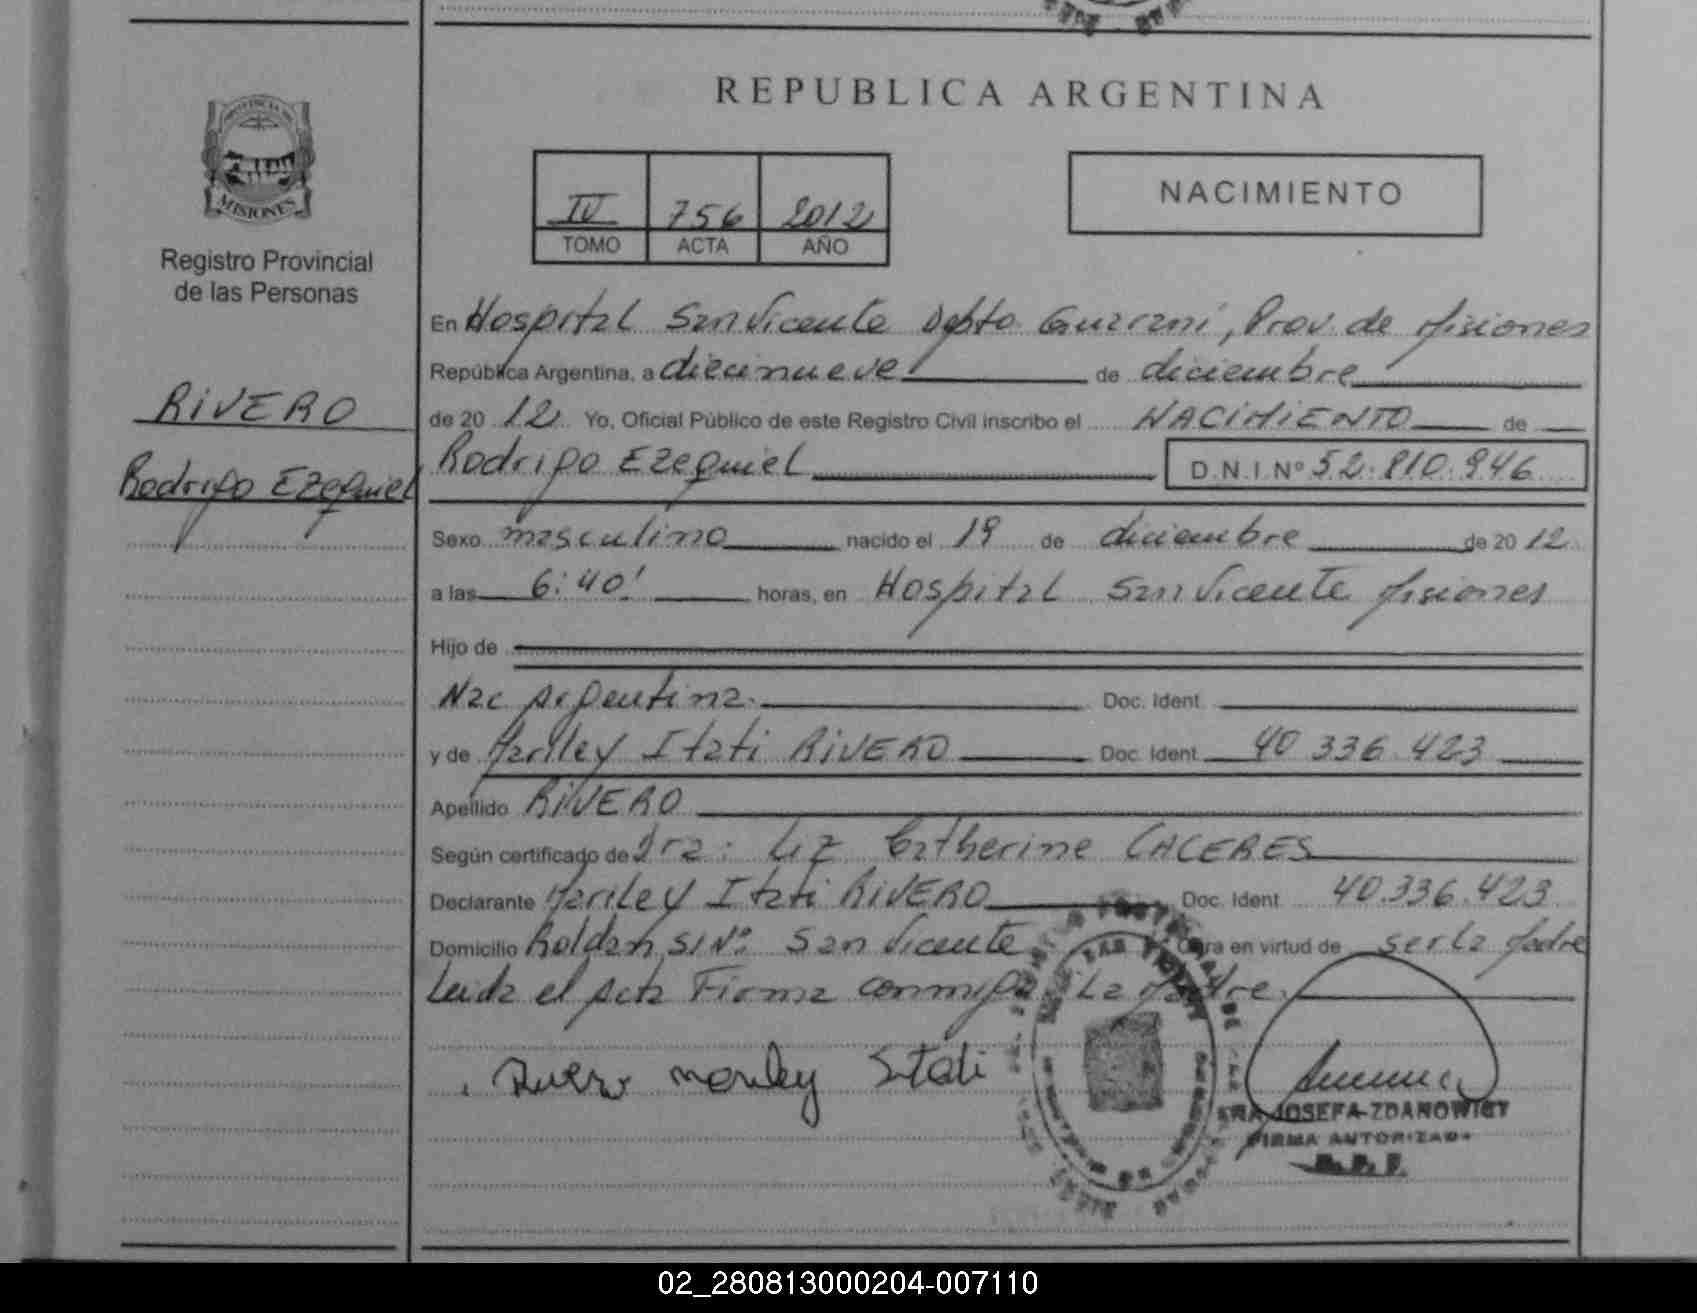 REPUBLICA ARGENTINA
MISIONES
Registro Provincial
de las Personas
IV 756 2012
TOMO ACTA AÑO
NACIMIENTO
RIVERO
Rodrigo Ezequiel
En Hospital San Vicente Dpto Guarani, Prov. de Misiones
República Argentina, a diecinueve de diciembre
de 20 12 Yo, Oficial Público de este Registro Civil inscribo el NACIMIENTO de
Rodrigo Ezequiel D.N.I. Nº 52.810.946
Sexo masculino nacido el 19 de diciembre de 20 12
a las 6:40' horas, en Hospital San Vicente Misiones
Hijo de
Nac Argentina. Doc. Ident.
y de Mariley Itati RIVERO Doc. Ident. 40 336.423
Apellido RIVERO
Según certificado de Dra: Liz Catherine CACERES
Declarante Mariley Itati RIVERO Doc. Ident. 40.336.423
Domicilio Roldan S/Nº San Vicente Obra en virtud de ser la Madre
Leida el Acta Firma conmigo La Madre.
Rivero mariley Itati
JOSEFA ZDANOWICZ
FIRMA AUTORIZADA
02_280813000204-007110